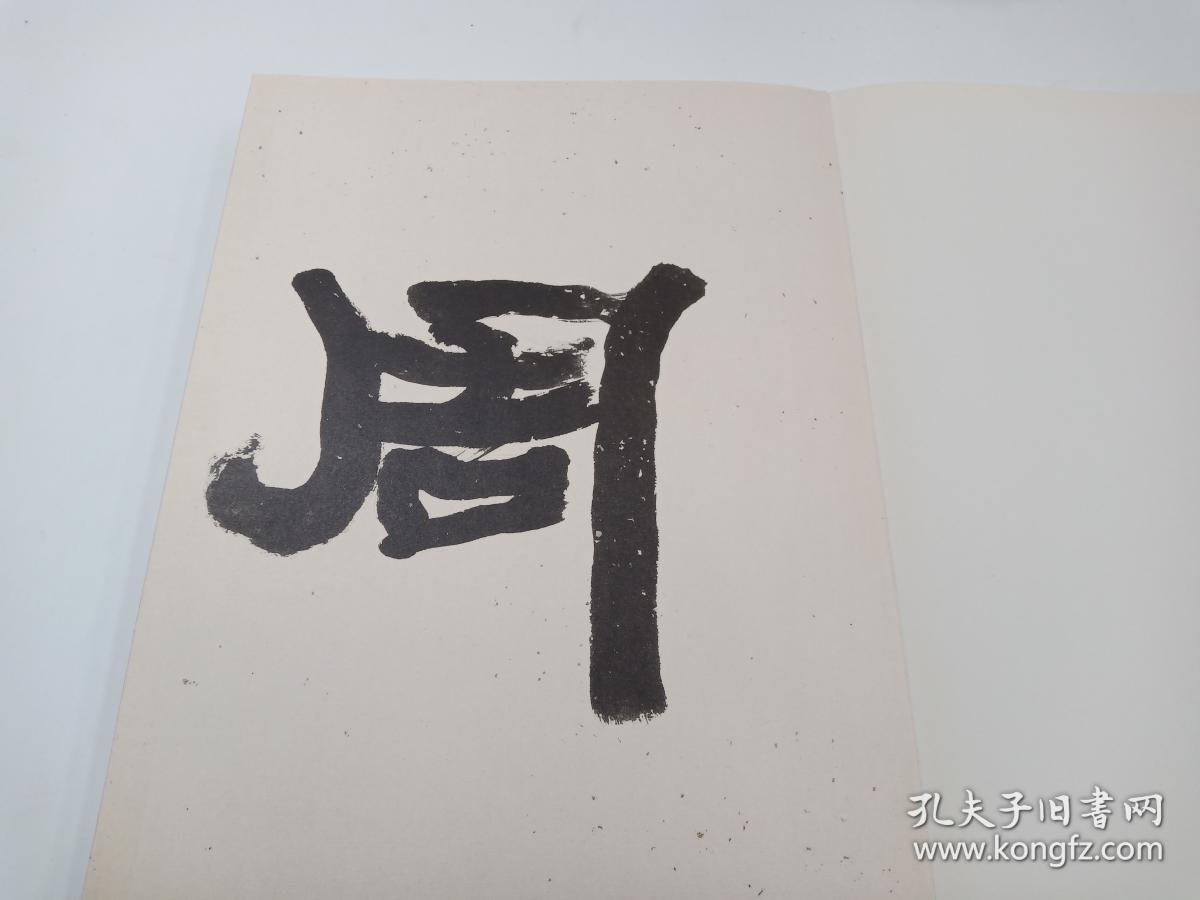 周
孔夫子旧書网
www.kongfz.com